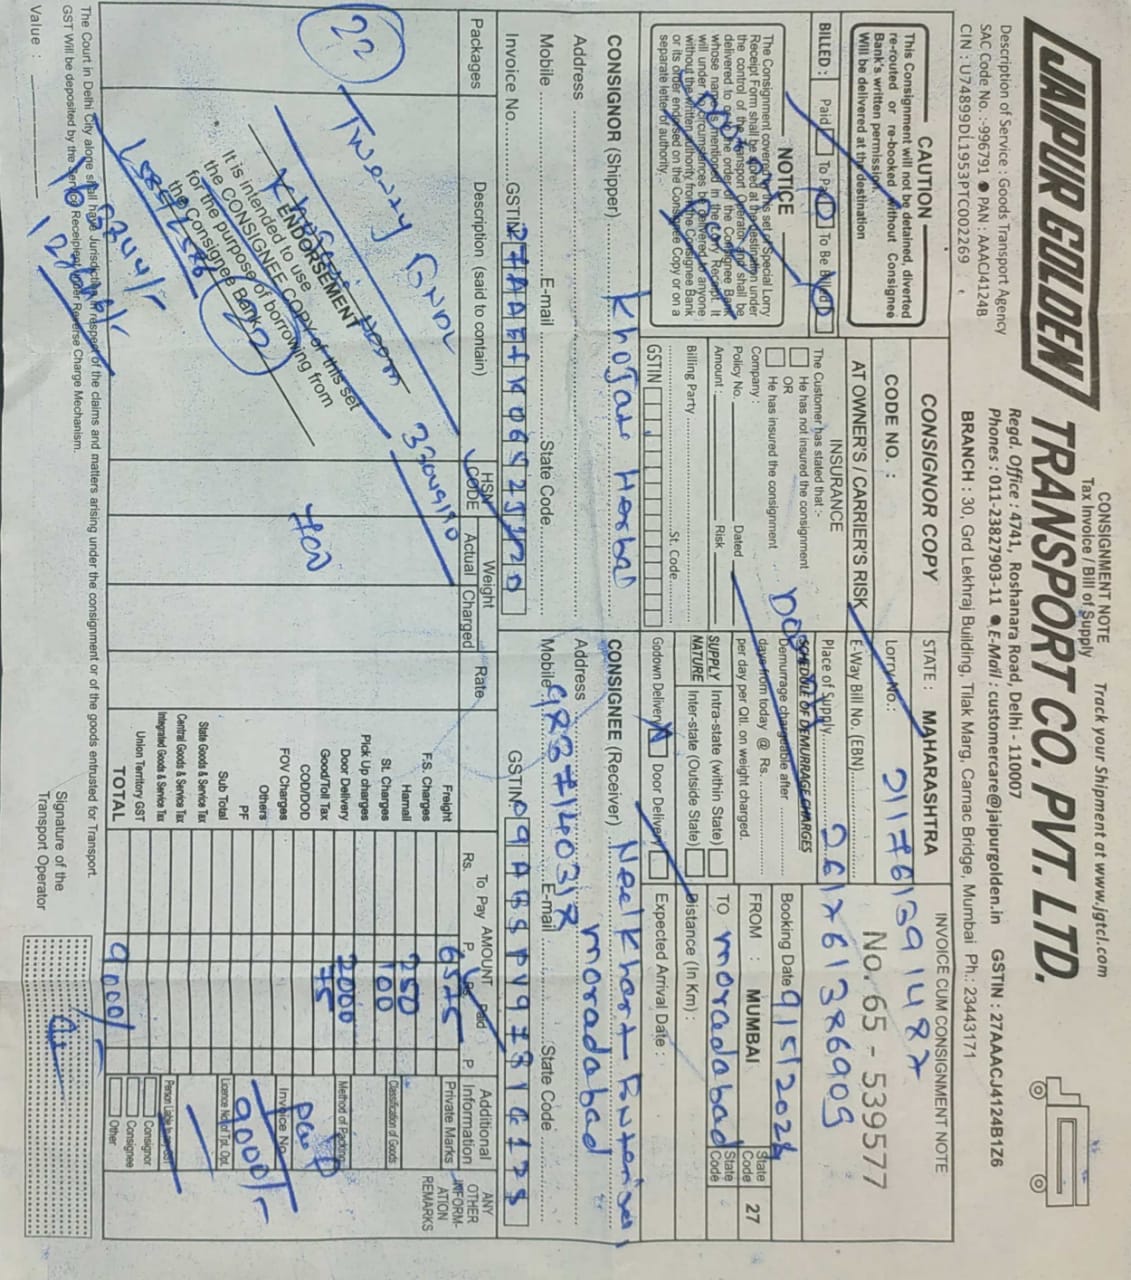 CONSIGNMENT NOTE
Tax Invoice / Bill of Supply
Track your Shipment at www.jgtcl.com
JAIPUR GOLDEN TRANSPORT CO. PVT. LTD.
Regd. Office : 4741, Roshanara Road, Delhi - 110007
Phones : 011-23827903-11 ● E-Mail : customercare@jaipurgolden.in GSTIN : 27AAACJ4124B1Z6
Description of Service : Goods Transport Agency
SAC Code No. :-996791 ● PAN : AAACJ4124B
CIN : U74899DL1953PTC002269
BRANCH : 30, Grd Lekhraj Building, Tilak Marg, Carnac Bridge, Mumbai Ph.: 23443171
CAUTION
This Consignment will not be detained, diverted
re-routed or re-booked without Consignee
Bank's written permission.
Will be delivered at the destination
CONSIGNOR COPY
CODE NO. :
AT OWNER'S / CARRIER'S RISK
STATE : MAHARASHTRA
Lorry No.:
E-Way Bill No. (EBN)
Place of Supply
INVOICE CUM CONSIGNMENT NOTE
No. 65 - 539577
BILLED : Paid To Pay To Be Billed
NOTICE
The Consignment covered by this set of Special Lorry
Receipt Form shall be stored at the destination under
the control of the Transport Operator and shall be
delivered to or to the order of the Consignee Bank
whose name is mentioned in the Lorry Receipt. It
will under no circumstances be delivered to anyone
without the written authority from the Consignee Bank
or its order endorsed on the Consignee Copy or on a
separate letter of authority.
INSURANCE
The Customer has stated that :-
He has not insured the consignment
OR
He has insured the consignment
Company :
Policy No. Dated
Amount Risk
Billing Party
St. Code
GSTIN
SCHEDULE OF DEMURRAGE CHARGES
Demurrage chargeable after
days from today @ Rs.
per day per Qtl. on weight charged.
SUPPLY NATURE
Intra-state (within State)
Inter-state (Outside State)
Godown Delivery Door Delivery
Booking Date 9/5/2024
FROM : MUMBAI State Code 27
TO moradabad State Code
Distance (In Km) :
Expected Arrival Date :
CONSIGNOR (Shipper) Khojate Herbal
Address
Mobile E-mail State Code
Invoice No. GSTIN
CONSIGNEE (Receiver) Neelkhant
Address moradabad
Mobile 9837140318 E-mail State Code
GSTIN
Packages
Description (said to contain)
HSN CODE
Weight
Actual Charged
Rate
AMOUNT
To Pay Paid
Rs. P. Rs. P.
Additional Information
ANY OTHER INFORMATION REMARKS
22
Twenty
ENDORSEMENT
It is intended to use
the CONSIGNEE COPY of this set
for the purpose of borrowing from
the Consignee Bank
22
33049190
700
Freight 6575
F.S. Charges
Hamali 250
St. Charges 100
Pick Up charges
Door Delivery 2000
Good/Toll Tax 75
COD/DOD
FOV Charges
Others
PF
Sub Total
State Goods & Service Tax
Central Goods & Service Tax
Integrated Goods & Service Tax
Union Territory GST
TOTAL 9000/
Private Marks
Classification of Goods
Method of Packing
Invoice No.
Paid
9000/-
Licence No. of Tpt. Opt.
Person Liable to pay GST
Consignor
Consignee
Other
The Court in Delhi City alone shall have Jurisdiction in respect of the claims and matters arising under the consignment or of the goods entrusted for Transport.
GST Will be deposited by the Service Recipient under Reverse Charge Mechanism.
Value :
Signature of the
Transport Operator